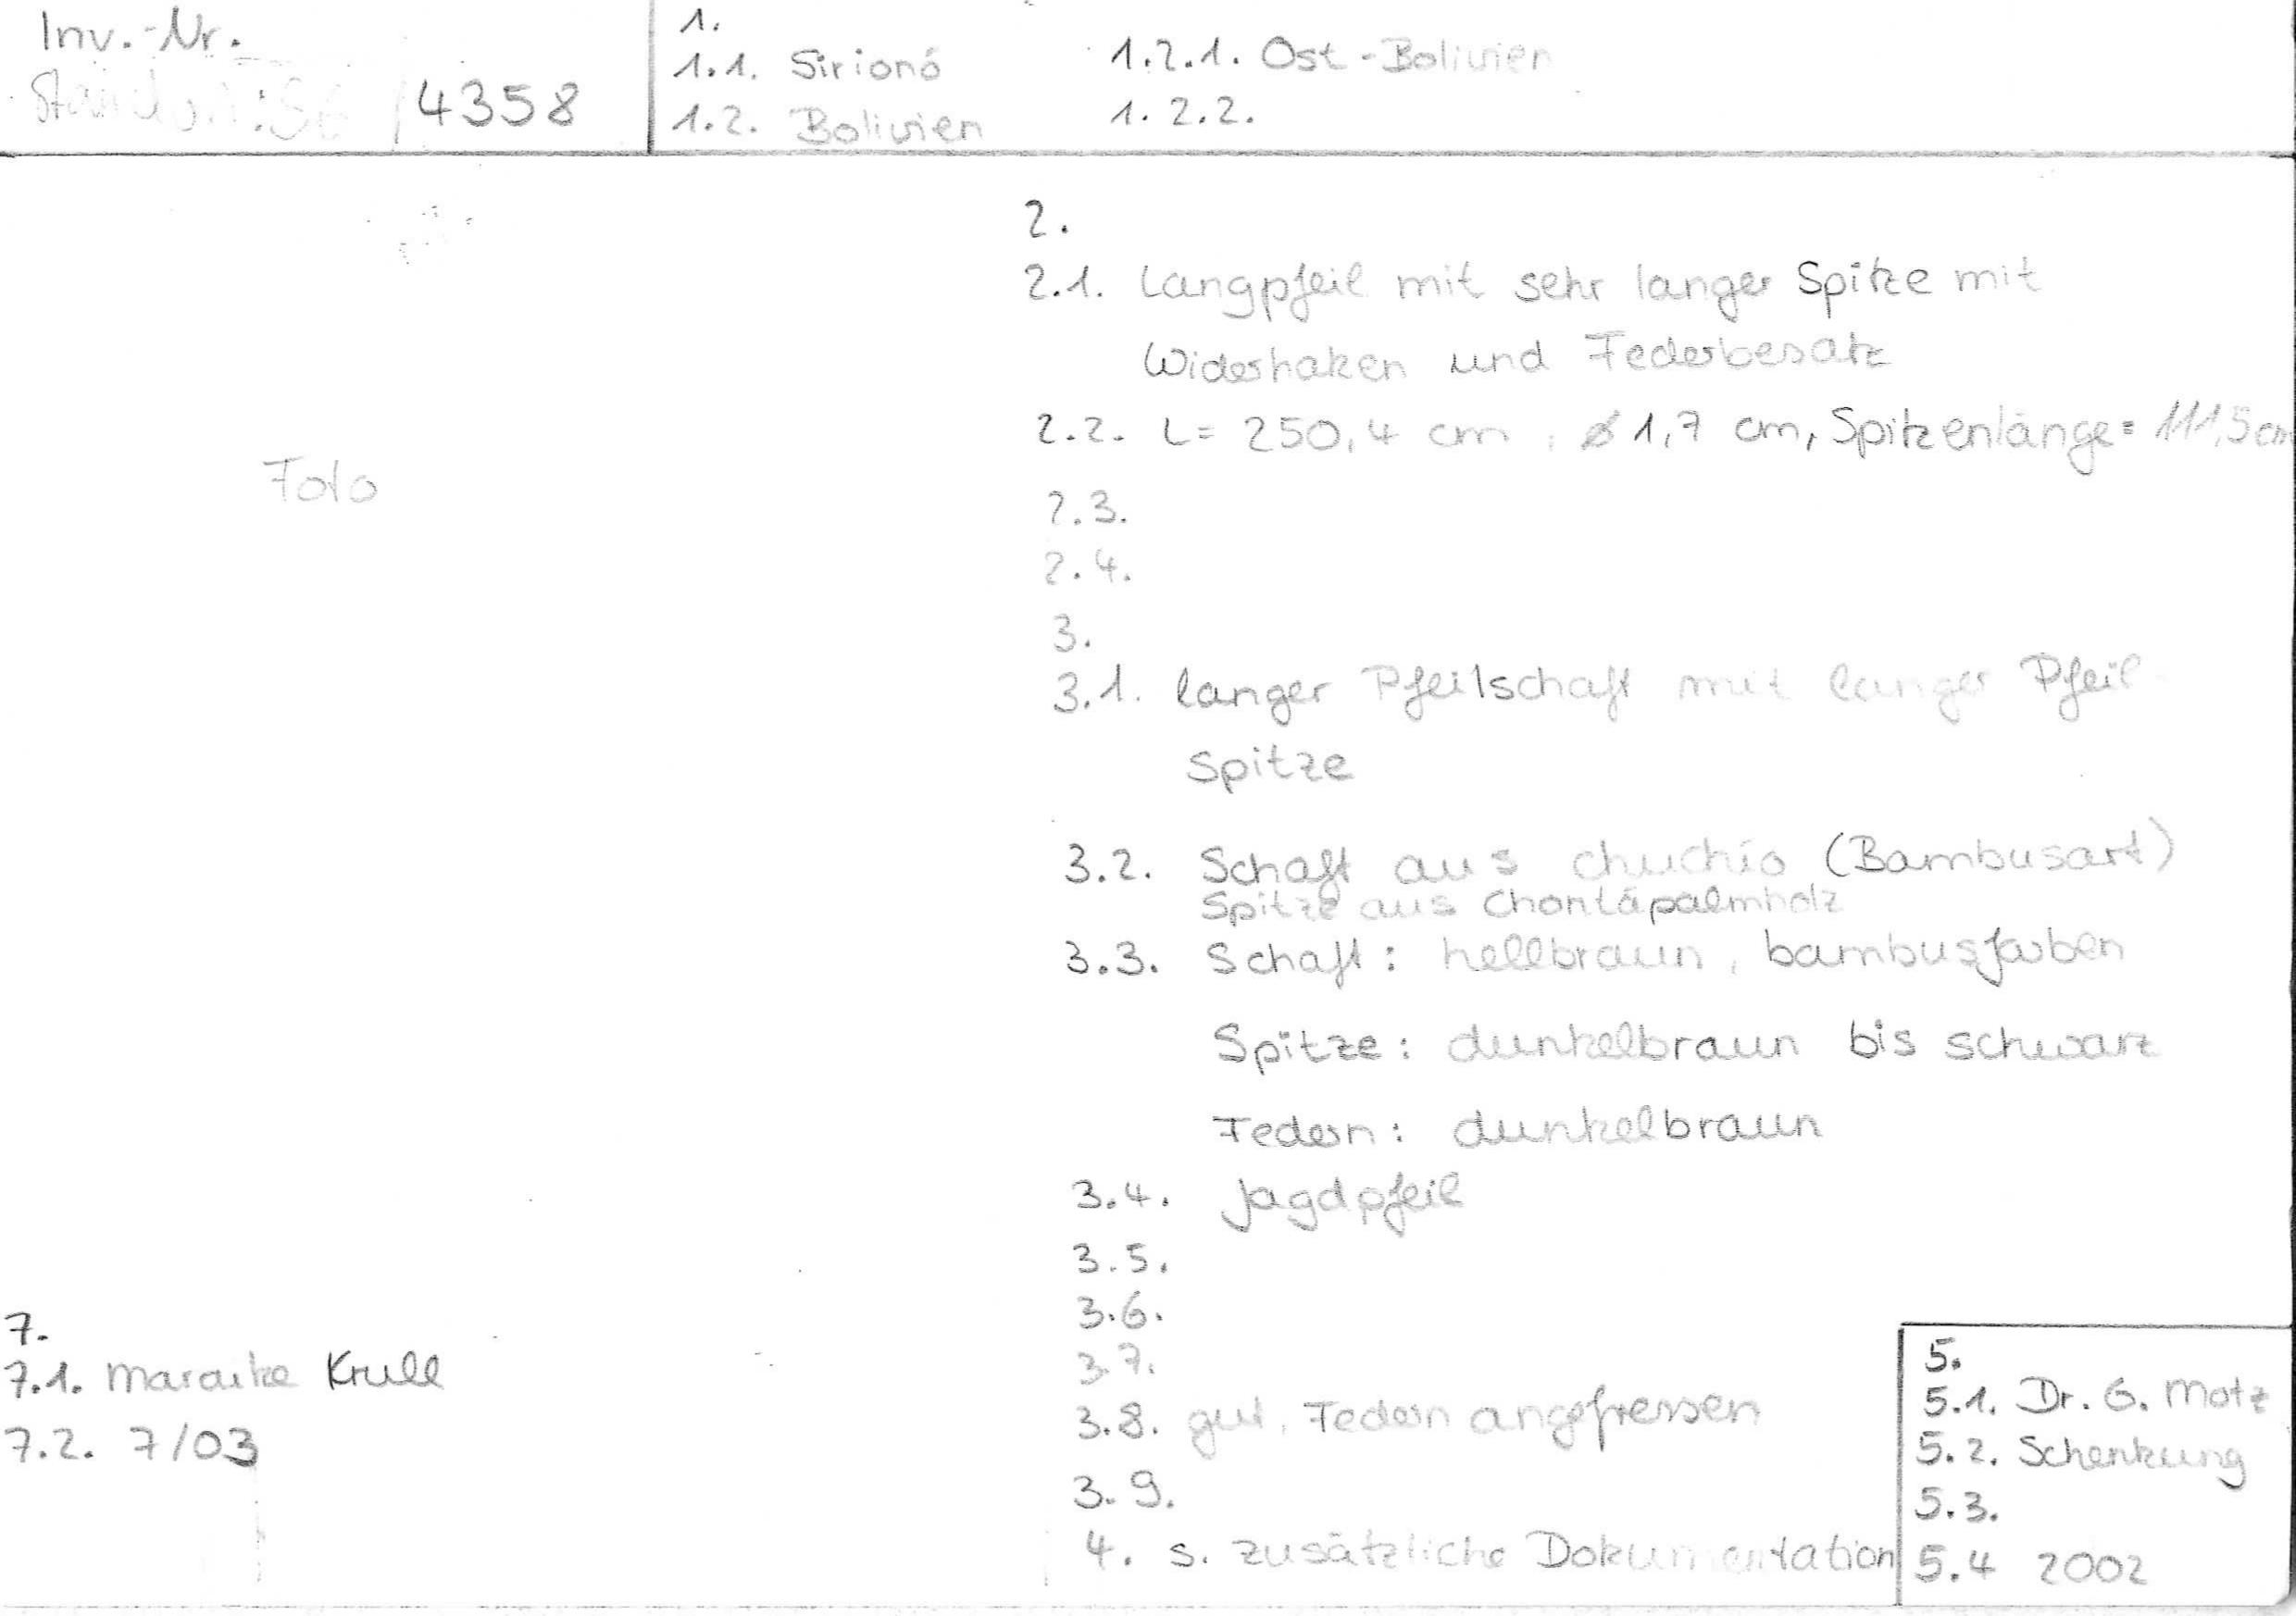 Inv.-Nr.
4358
1.
1.1. Sirionó
1.2. Bolivien
1.2.1. Ost-Bolivien
1.2.2.
2.
2.1. Langpfeil mit sehr langer Spitze mit
Widerhaken und Federbesatz
2.2. L= 250,4 cm, ø 1,7 cm, Spitzenlänge= 111,5 cm
Foto
2.3.
2.4.
3.
3.1. langer Pfeilschaft mit langer Pfeil-
spitze
3.2. Schaft aus chuchío (Bambusart)
Spitze aus Chontapalmholz
3.3. Schaft: hellbraun, bambusfarben
Spitze: dunkelbraun bis schwarz
Federn: dunkelbraun
3.4. Jagdpfeil
3.5.
3.6.
3.7.
3.8. gut, Federn angefressen
3.9.
4. s. zusätzliche Dokumentation
5.
5.1. Dr. G. Motz
5.2. Schenkung
5.3.
5.4 2002
7.
7.1. Maraike Krull
7.2. 7/03